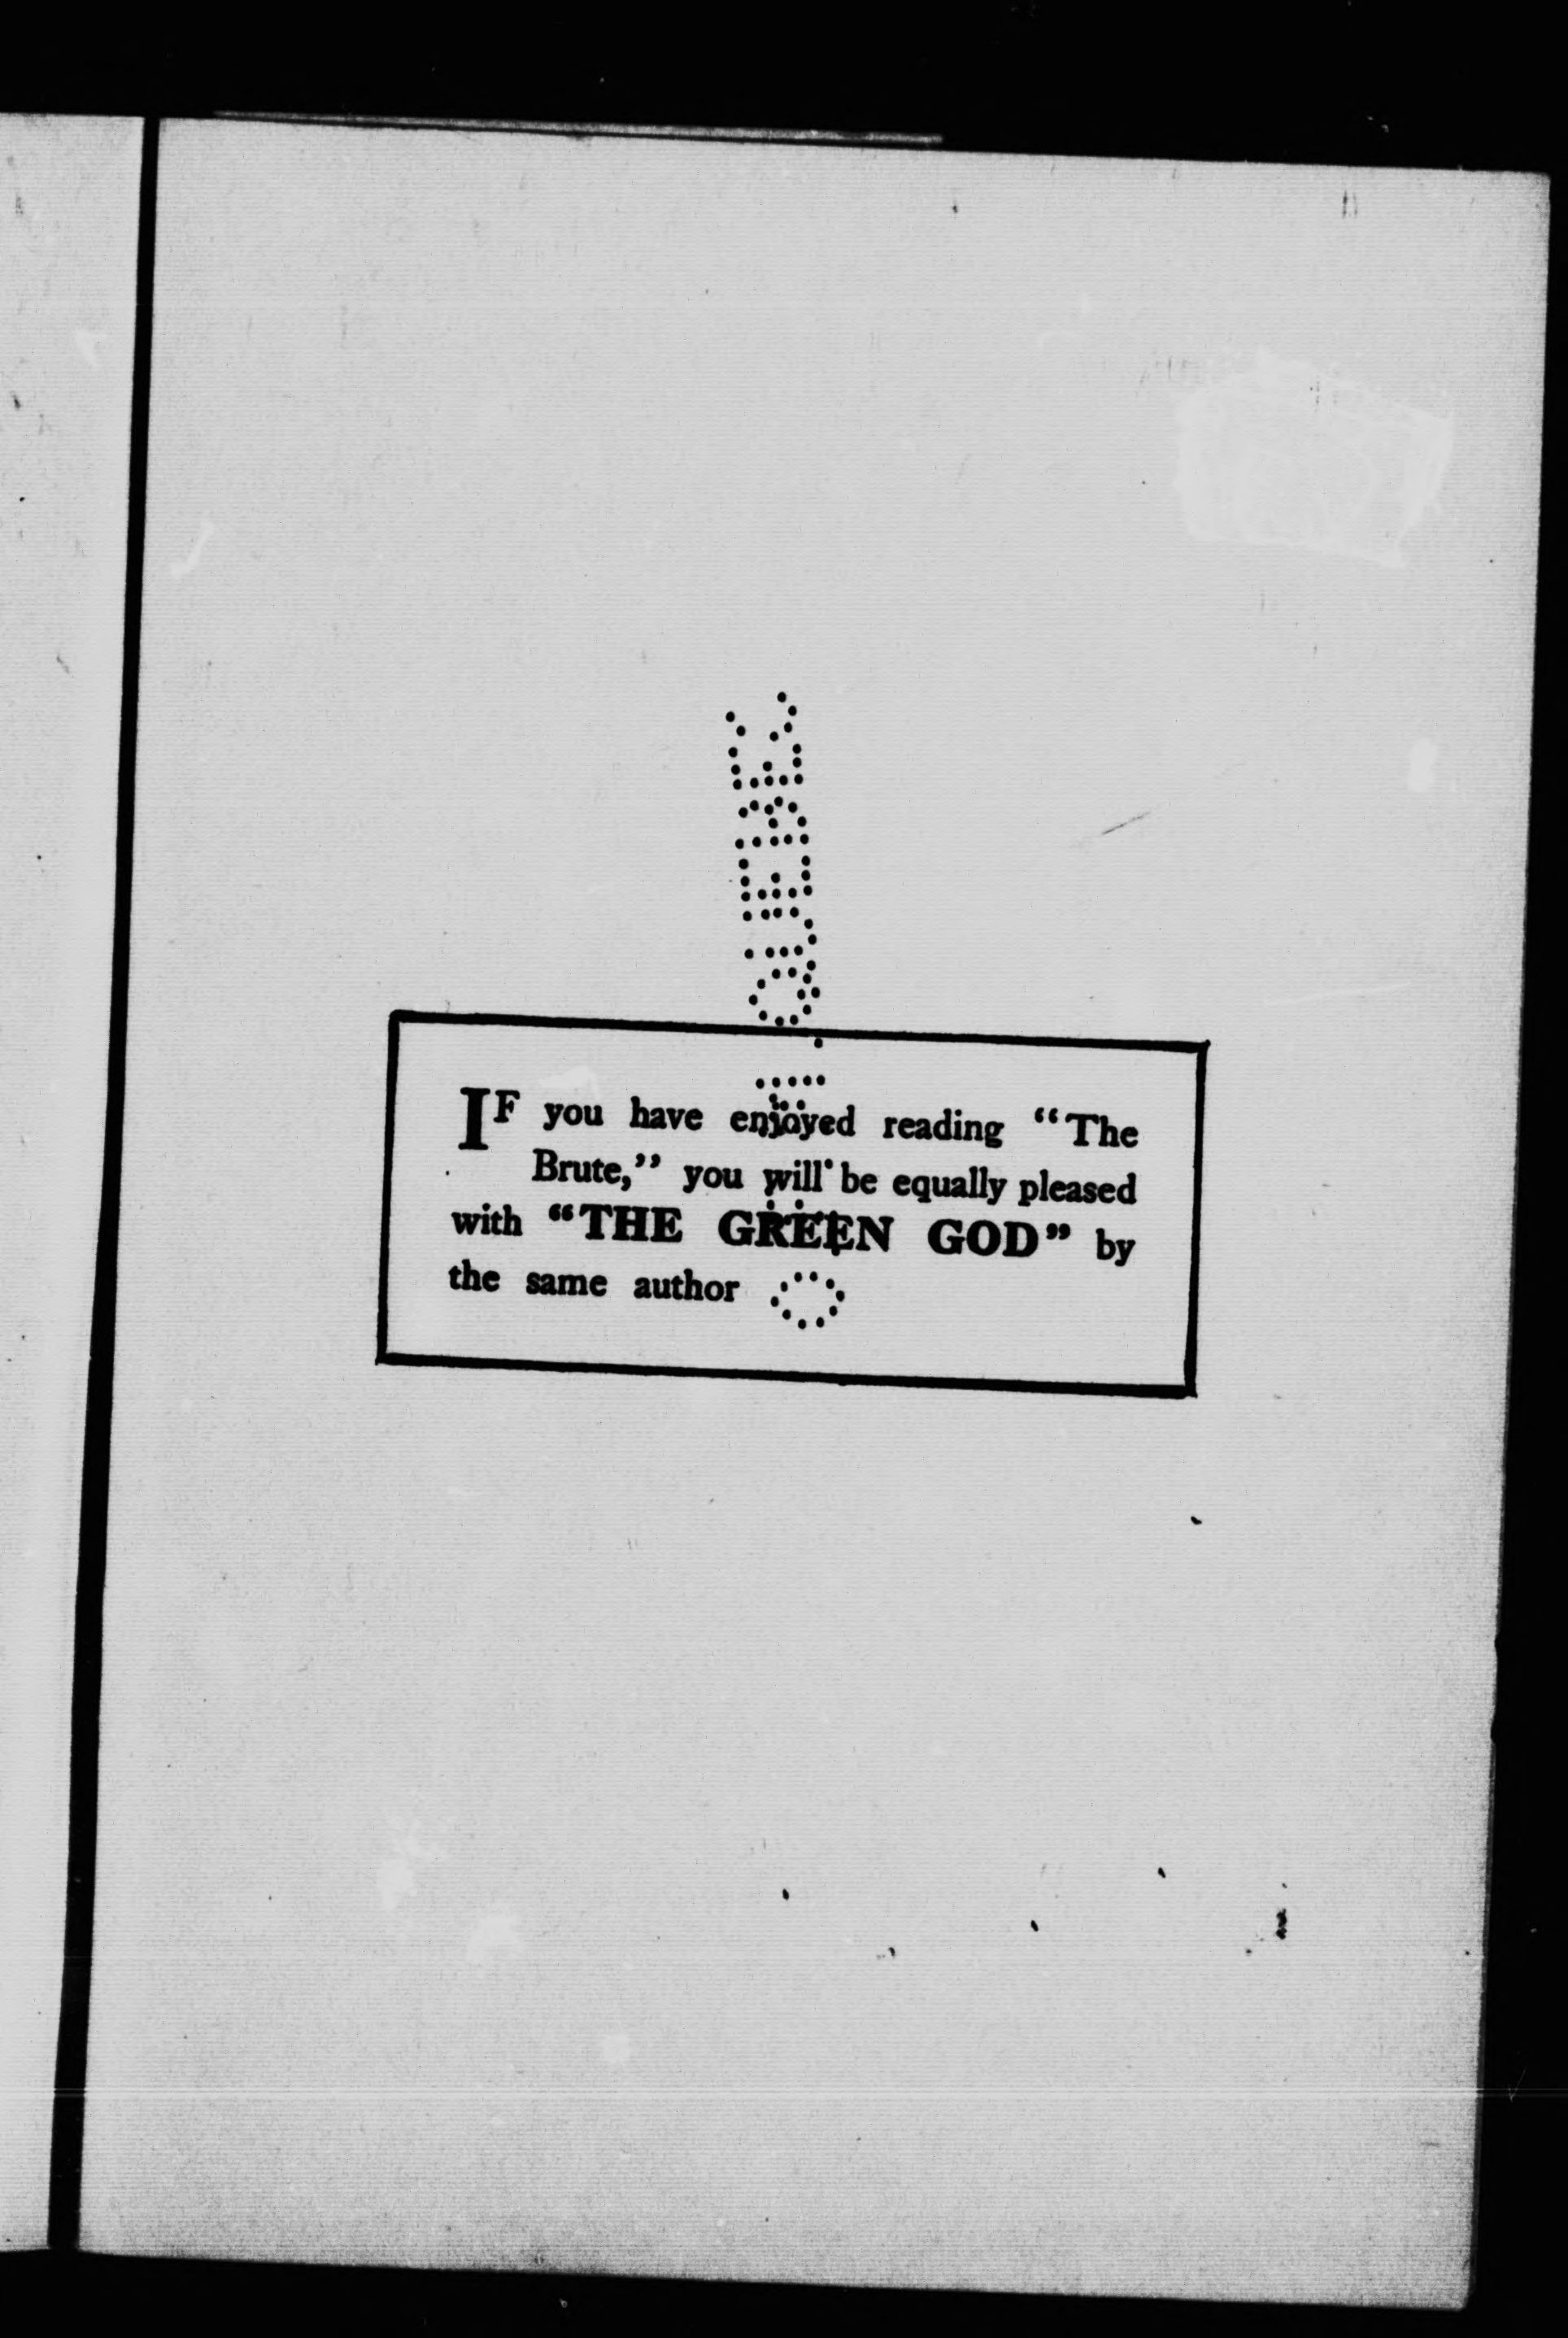 IF you have enjoyed reading "The
Brute," you will be equally pleased
with "THE GREEN GOD" by
the same author